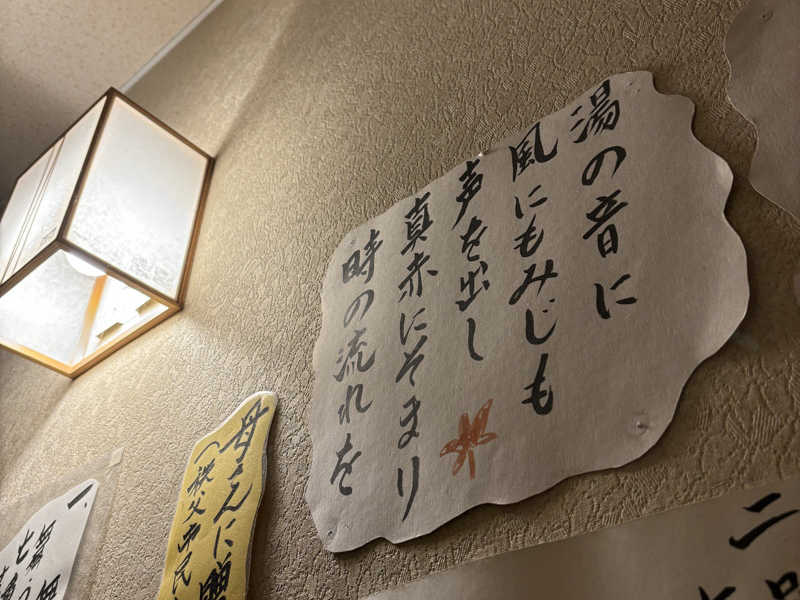 湯の音に
風にもみじも
声を出し
真赤にそまり
時の流れを
母さんに贈
(秩父市民